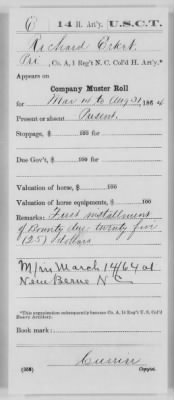 E 14 H. Art'y. U.S.C.T.
Richard
Pri, Co. A, 1 Reg't N. C. Col'd H. Art'y.*
Appears on
Company Muster Roll
for Mar 14 to Aug 31, 1864
Present or absent Present.
Stoppage, $ 100 for
Due Gov't, $ 100 for
Valuation of horse, $ 100
Valuation of horse equipments, $ 100
Remarks: First installment
of Bounty due twenty five
(25) dollars
M/in March 14/64 at
New Berne N C
*This organization subsequently became Co. A, 14 Reg't U. S. Col'd
Heavy Artillery.
Book mark:
(358) Copyist.